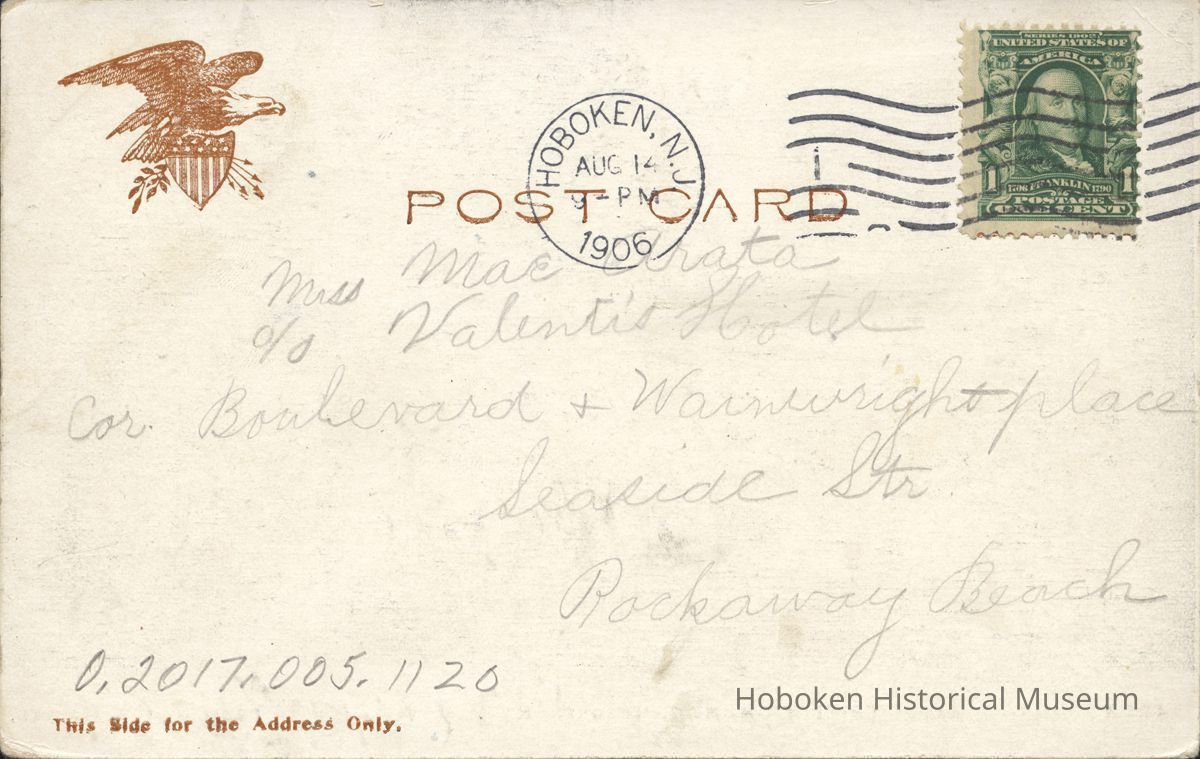 SERIES 1902
UNITED STATES OF
AMERICA
1 1706 FRANKLIN 1790 1
POSTAGE
ONE CENT
HOBOKEN, N.J.
AUG 14
9-PM
1906
POST CARD
Miss Mae Arata
c/o Valenti's Hotel
Cor. Boulevard + Wainwright place
Seaside Str
Rockaway Beach
0.2017.005.1120
This Side for the Address Only.
Hoboken Historical Museum